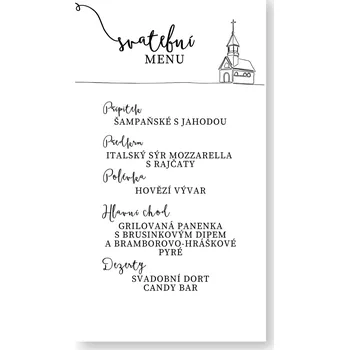 svatební
MENU
Přípitek
ŠAMPAŇSKÉ S JAHODOU
Předkrm
ITALSKÝ SÝR MOZZARELLA
S RAJČATY
Polévka
HOVĚZÍ VÝVAR
Hlavní chod
GRILOVANÁ PANENKA
S BRUSINKOVÝM DIPEM
A BRAMBOROVO-HRÁŠKOVÉ
PYRÉ
Dezerty
SVADOBNÍ DORT
CANDY BAR